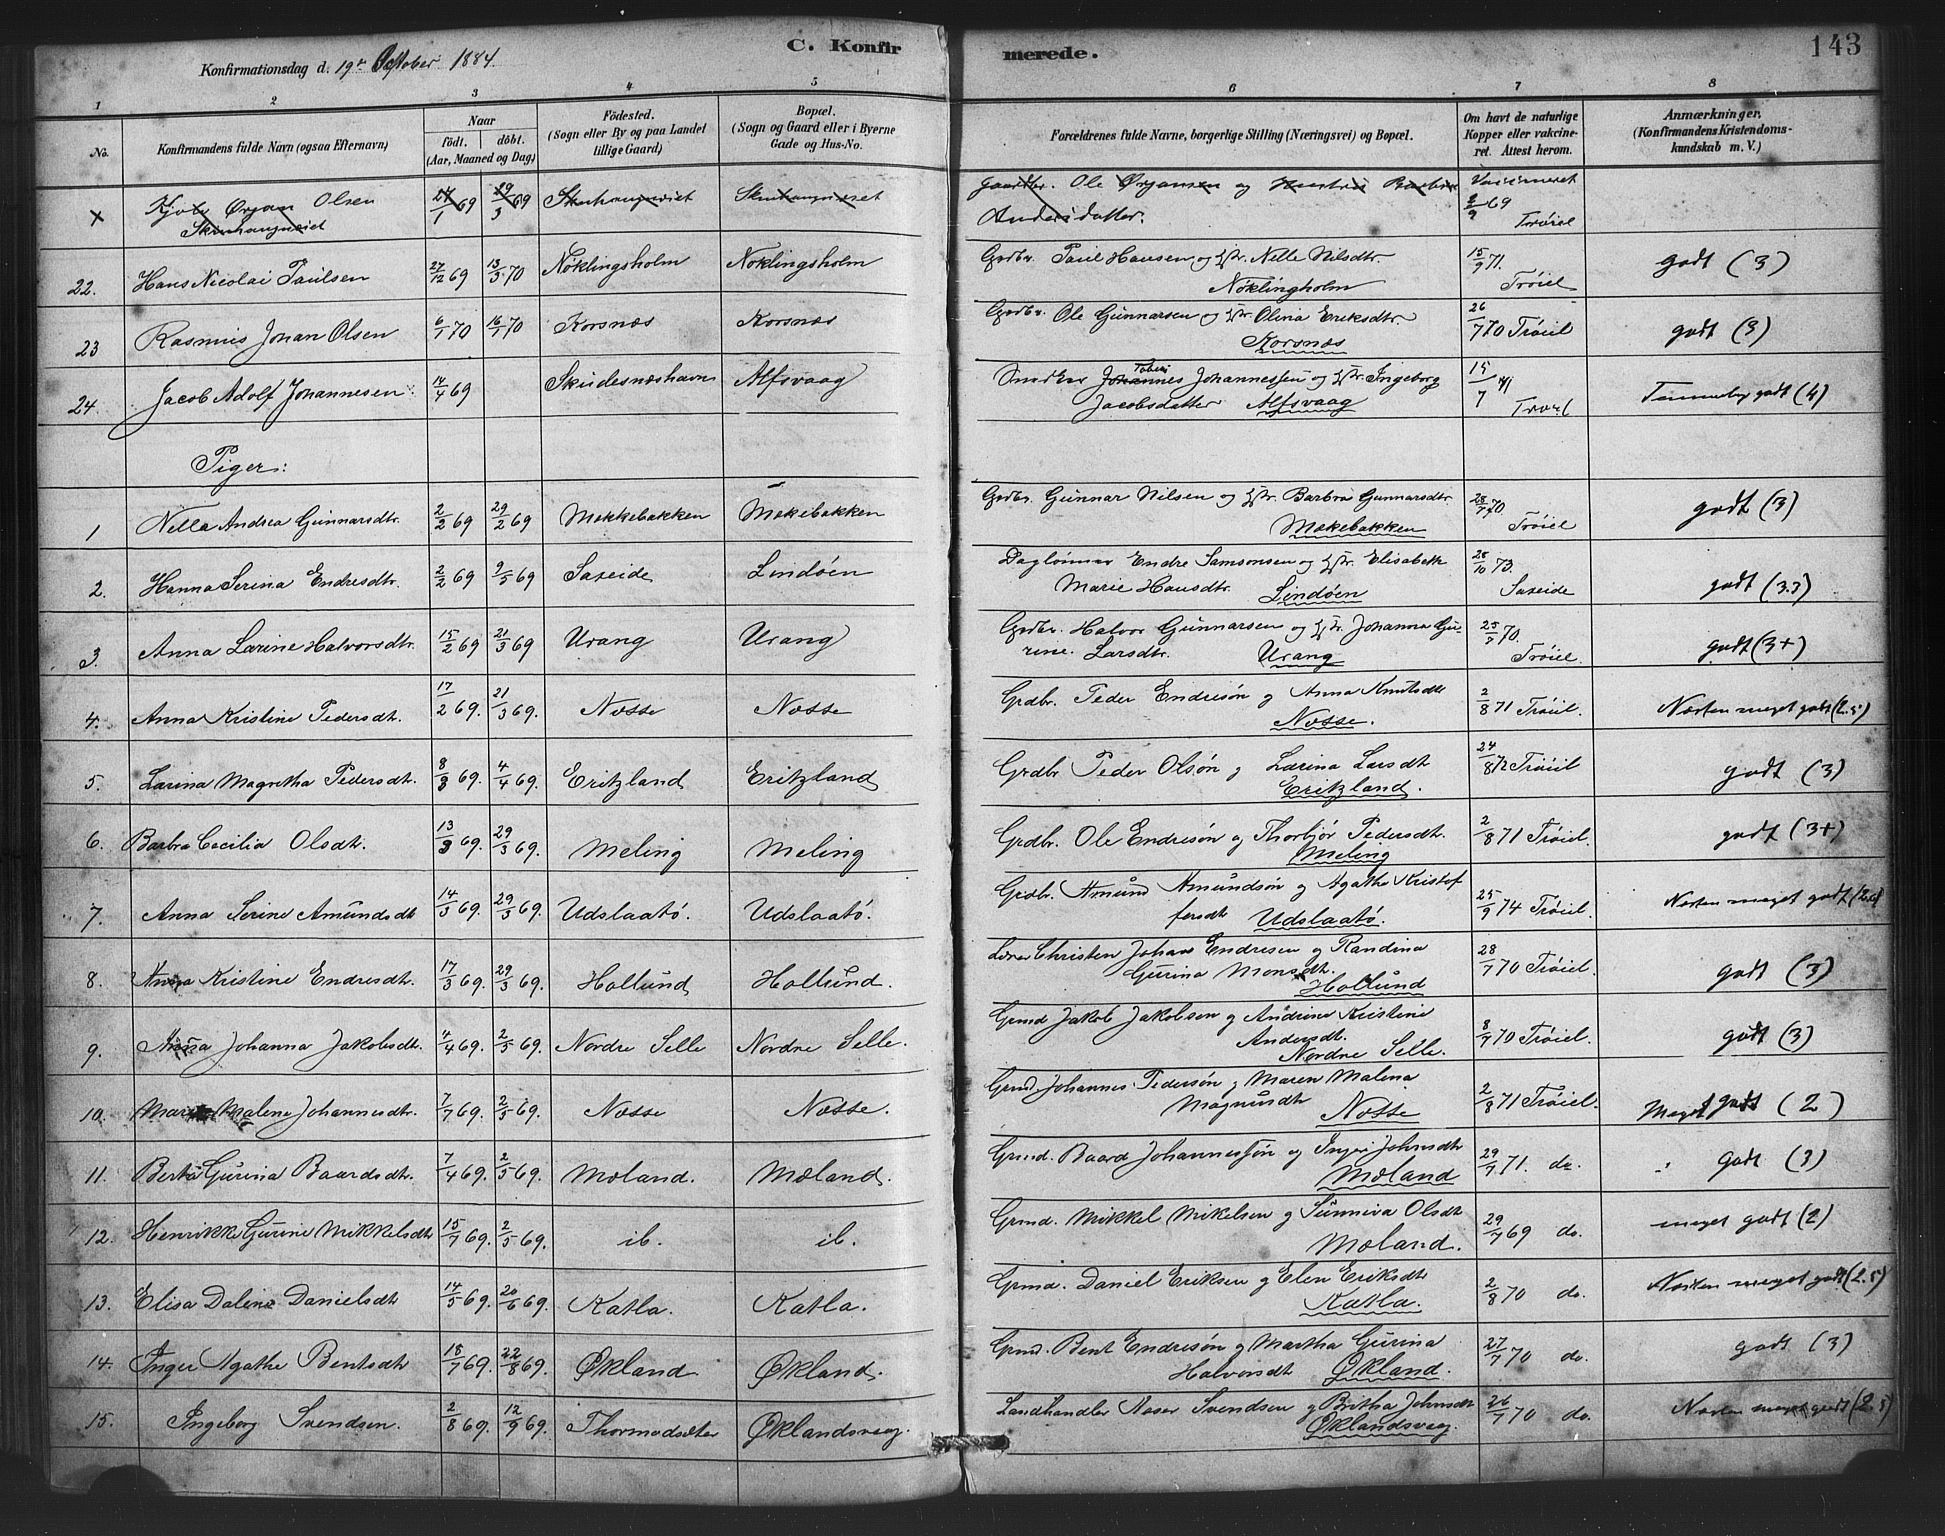 143
C. Konfirmerede.
Konfirmationsdag d. 19de October 1884.
1 2 3 4 5 6 7 8
No. Konfirmandens fulde Navn (ogsaa Efternavn) Naar født. døbt. (Aar, Maaned og Dag) Fødested. (Sogn eller By og paa Landet tillige Gaard) Bopæl. (Sogn og Gaard eller i Byerne Gade og Hus-No. Forældrenes fulde Navne, borgerlige Stilling (Næringsvei) og Bopæl. Om havt de naturlige Kopper eller vakcineret. Attest herom. Anmærkninger. (Konfirmandens Kristendomskundskab m. V.)
x Ørjan Olsen 24/1 69 29/3 69 Gaardbr. Ole Ørjansen og Hustru Andersdatter. Vaccineret 2/9 69 Trøiel
22. Hans Nicolai Paulsen 27/12 69 13/3 70 Nøklingsholm Nøklingsholm Grdbr. Paul Hansen og Hstr. Nelle Nilsdtr. Nøklingholm 15/9 71. Trøiel godt (3)
23 Rasmus Johan Olsen 6/1 70 16/1 70 Korsnæs Korsnæs Grdbr. Ole Gunnarsen og Hstr. Olina Eriksdtr. Korsnæs 26/7 70 Trøiel godt (3)
24. Jacob Adolf Johannesen. 14/4 69 Skudesnæshavn Alfsvaag Johannes Tobias Johannessen og Hstr. Ingeborg Jacobsdatter Alfsvaag 15/7 Trøiel Temmelig godt (4)
Piger:
1 Nella Andrea Gunnarsdtr. 2/2 69 29/2 69 Mekkebakken Mækebakken Grdbr. Gunnar Nilsen og Hstr. Barbra Gunnarsdtr. Mækebakken 25/7 70 Trøiel godt (3)
2. Hanna Serina Endresdtr. 2/2 69 9/5 69 Saxeide Lindøen Daglønner Endre Samsonsen og Hstr. Elisabeth Marie Hansdtr. Lindøen 28/10 73. Saxeide godt (3.3)
3. Anna Larine Halvorsdtr. 15/2 69 21/3 69 Urang Urang Grdbr. Halvor Gunnarsen og Hstr. Johanna Gurine Larsdtr. Urang 25/7 70. Trøiel. godt (3+)
4. Anna Kristine Pedersdt. 17/2 69. 21/3 69. Næsse Næsse Grdbr. Peder Endresøn og Anna Knutsdt Næsse. 2/8 71 Trøiel. Næsten meget godt (2.5)
5. Larina Magretha Pedersdt. 8/3 69. 4/4 69. Eritzland Eritzland Grdbr Peder Olsøn og Larina Larsdt Eritzland. 24/8 72 Trøiel godt (3)
6. Barbra Cecilia Olsdt. 13/3 69. 29/3 69. Meling Meling Grdbr. Ole Endresøn og Thorbjør Pedersdt. Meling 2/8 71 Trøiel. godt (3+)
7. Anna Serine Amundsdt 14/3 69. 29/3 69. Udslaatø. Udslaatø. Grdbr. Amund Amundsøn og Agathe Kristofersdt Udslaatø. 25/9 74 Trøiel. Næsten meget godt
8. Anna Kristine Endresdt. 17/3 69. 29/3 69. Hollund Hollund. Lærer Christen Johan Endresen og Randina Gurina Monsdt. Hollund 28/7 70 Trøiel. godt (3)
9. Anna Johanna Jakobsdt. 4/4 69. 2/5 69. Nordre Selle Nordre Selle. Grmd Jakob Jakobsen og Andrine Kristine Andersdt. Nordre Selle. 8/7 70 Trøiel. godt (3)
10. Malene Johannesdtr. 7/7 69. 2/5 69. Næsse Næsse. Grmd. Johannes Pedersøn og Maren Malena Magnusdt Næsse 2/8 71 Trøiel. Meget godt (2)
11. Berta Gurina Baardsdt. 7/4 69. 2/5 69. Mæland. Mæland. Grmd. Baard Johannessøn og Inger Johnsdt Mæland 29/7 71. do. godt (3)
12. Henrikke Gurine Mikkelsdt 15/7 69. 2/5 69. ib. ib. Grmd. Mikkel Mikelsen og Sunniva Olsdt Mæland. 29/7 69 do. meget godt (2)
13. Elisa Daline Danielsdt 14/5 69. 20/6 69. Katla. Katla. Grmd. Daniel Eriksen og Elen Eriksdt Katla. 2/8 70 do. Næsten meget godt (2.5)
14. Inger Agathe Bentsdt 18/7 69. 22/8 69. Økland Økland. Grmd. Bent Endresøn og Martha Gurina Halvorsdt Økland. 27/7 70 do. godt (3)
15. Ingeborg Svendsen. 2/8 69. 12/9 69. Thormodsæter Øklandsvaag. Landhandler Svendsen og Britha Johnsdt Øklandsvaag. 26/7 70 do. Næsten meget godt (2.5)